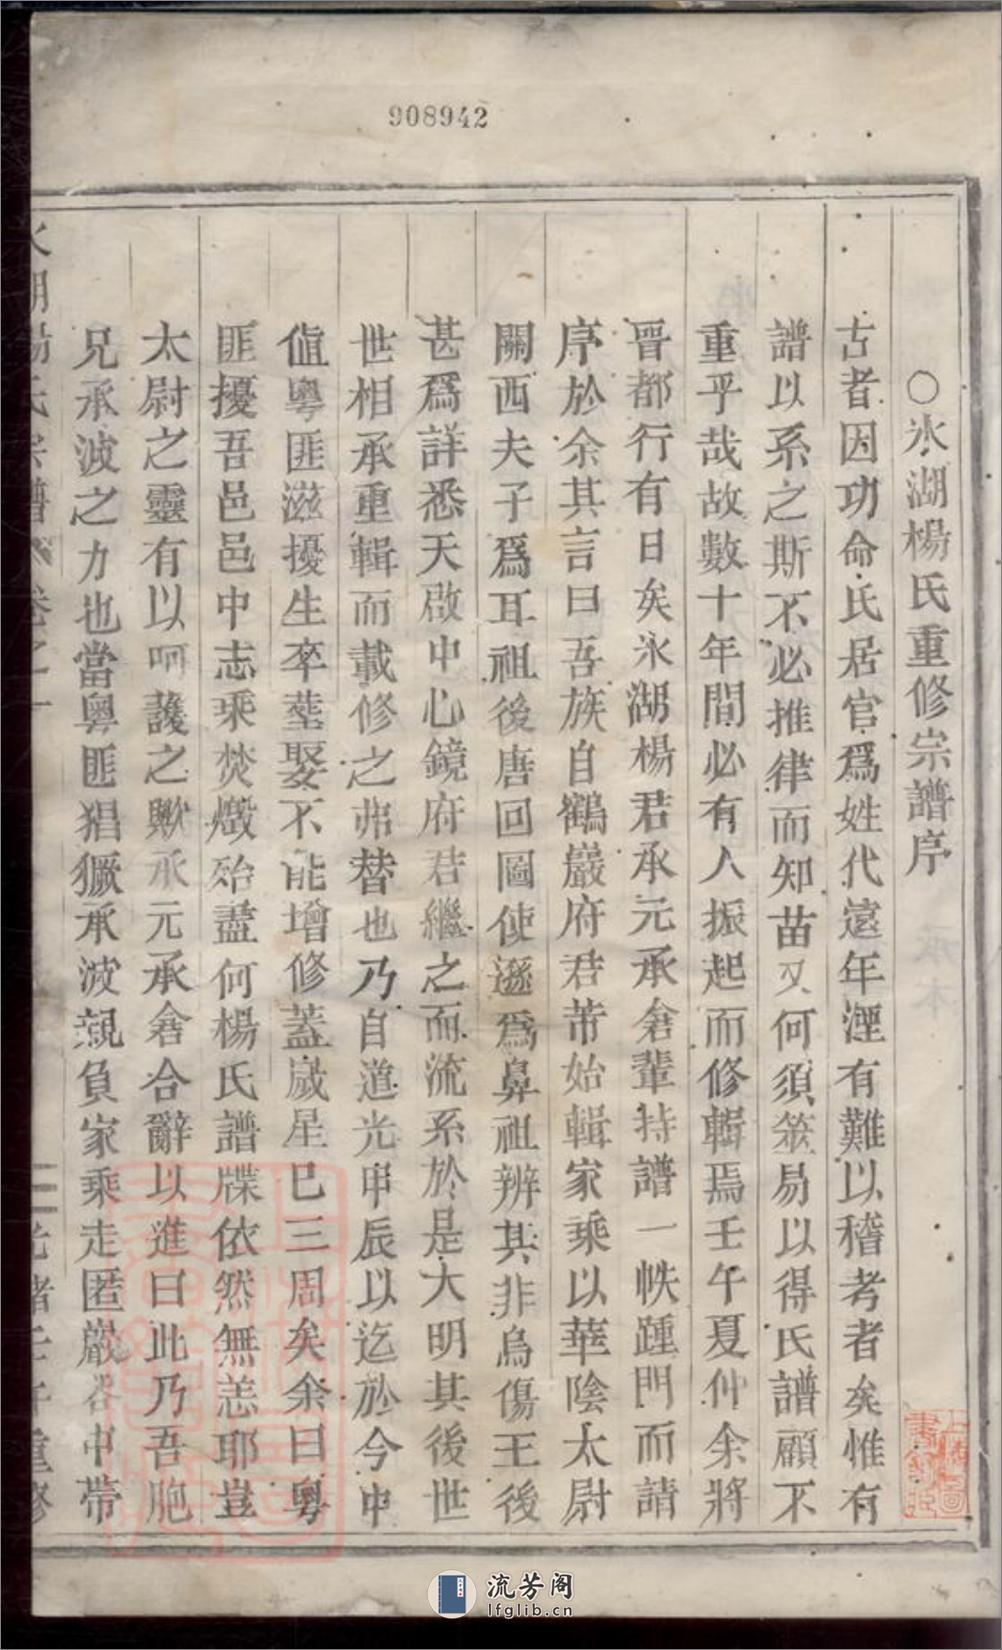 908942
○氷湖楊氏重修宗譜序
古者因功命氏居官爲姓代遠年湮有難以稽考者矣惟有
譜以系之斯不必推律而知苗又何須筮易以得氏譜顧不
重乎哉故數十年間必有人振起而修輯焉壬午夏仲余將
晋都行有日矣氷湖楊君承元承畬輩持譜一帙踵門而請
序於余其言曰吾族自鶴巖府君芾始輯家乘以華陰太尉
關西夫子爲耳祖後唐回圖使遜爲鼻祖辨其非烏傷王後
甚爲詳悉天啟中心鏡府君繼之而流系於是大明其後世
世相承重輯而載修之弗替也乃自道光甲辰以迄於今中
值粵匪滋擾生卒塟娶不能增修蓋歲星已三周矣余曰粵
匪擾吾邑邑中志乘焚燬殆盡何楊氏譜牒依然無恙耶豈
太尉之靈有以呵護之歟承元承畬合辭以進曰此乃吾胞
兄承波之力也當粵匪猖獗承波親負家乘走匿巖谷中帶
氷湖楊氏宗譜 卷之一 二 光緒壬午重修
流芳阁
lfglib.cn